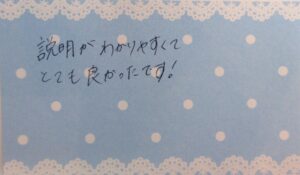 説明がわかりやすくて
とても良かったです!